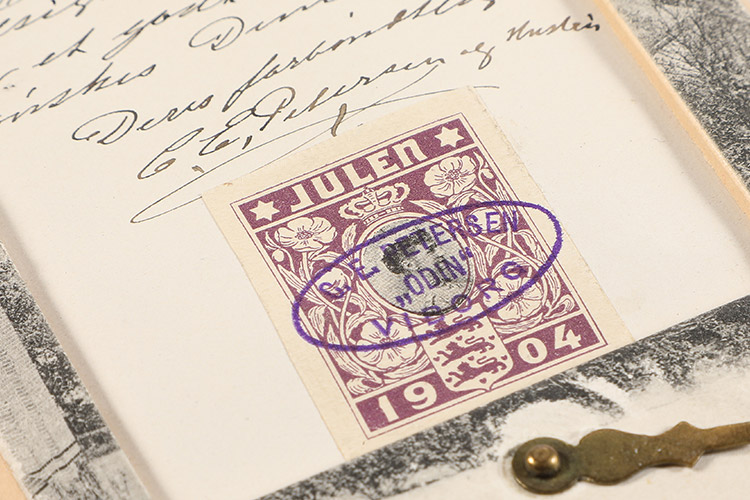 et godt
ønskes Dem
Deres forbindtlig
C. E. Petersen og Hustru
JULEN
C. E. PETERSEN
„ODIN“
VIBORG
1904